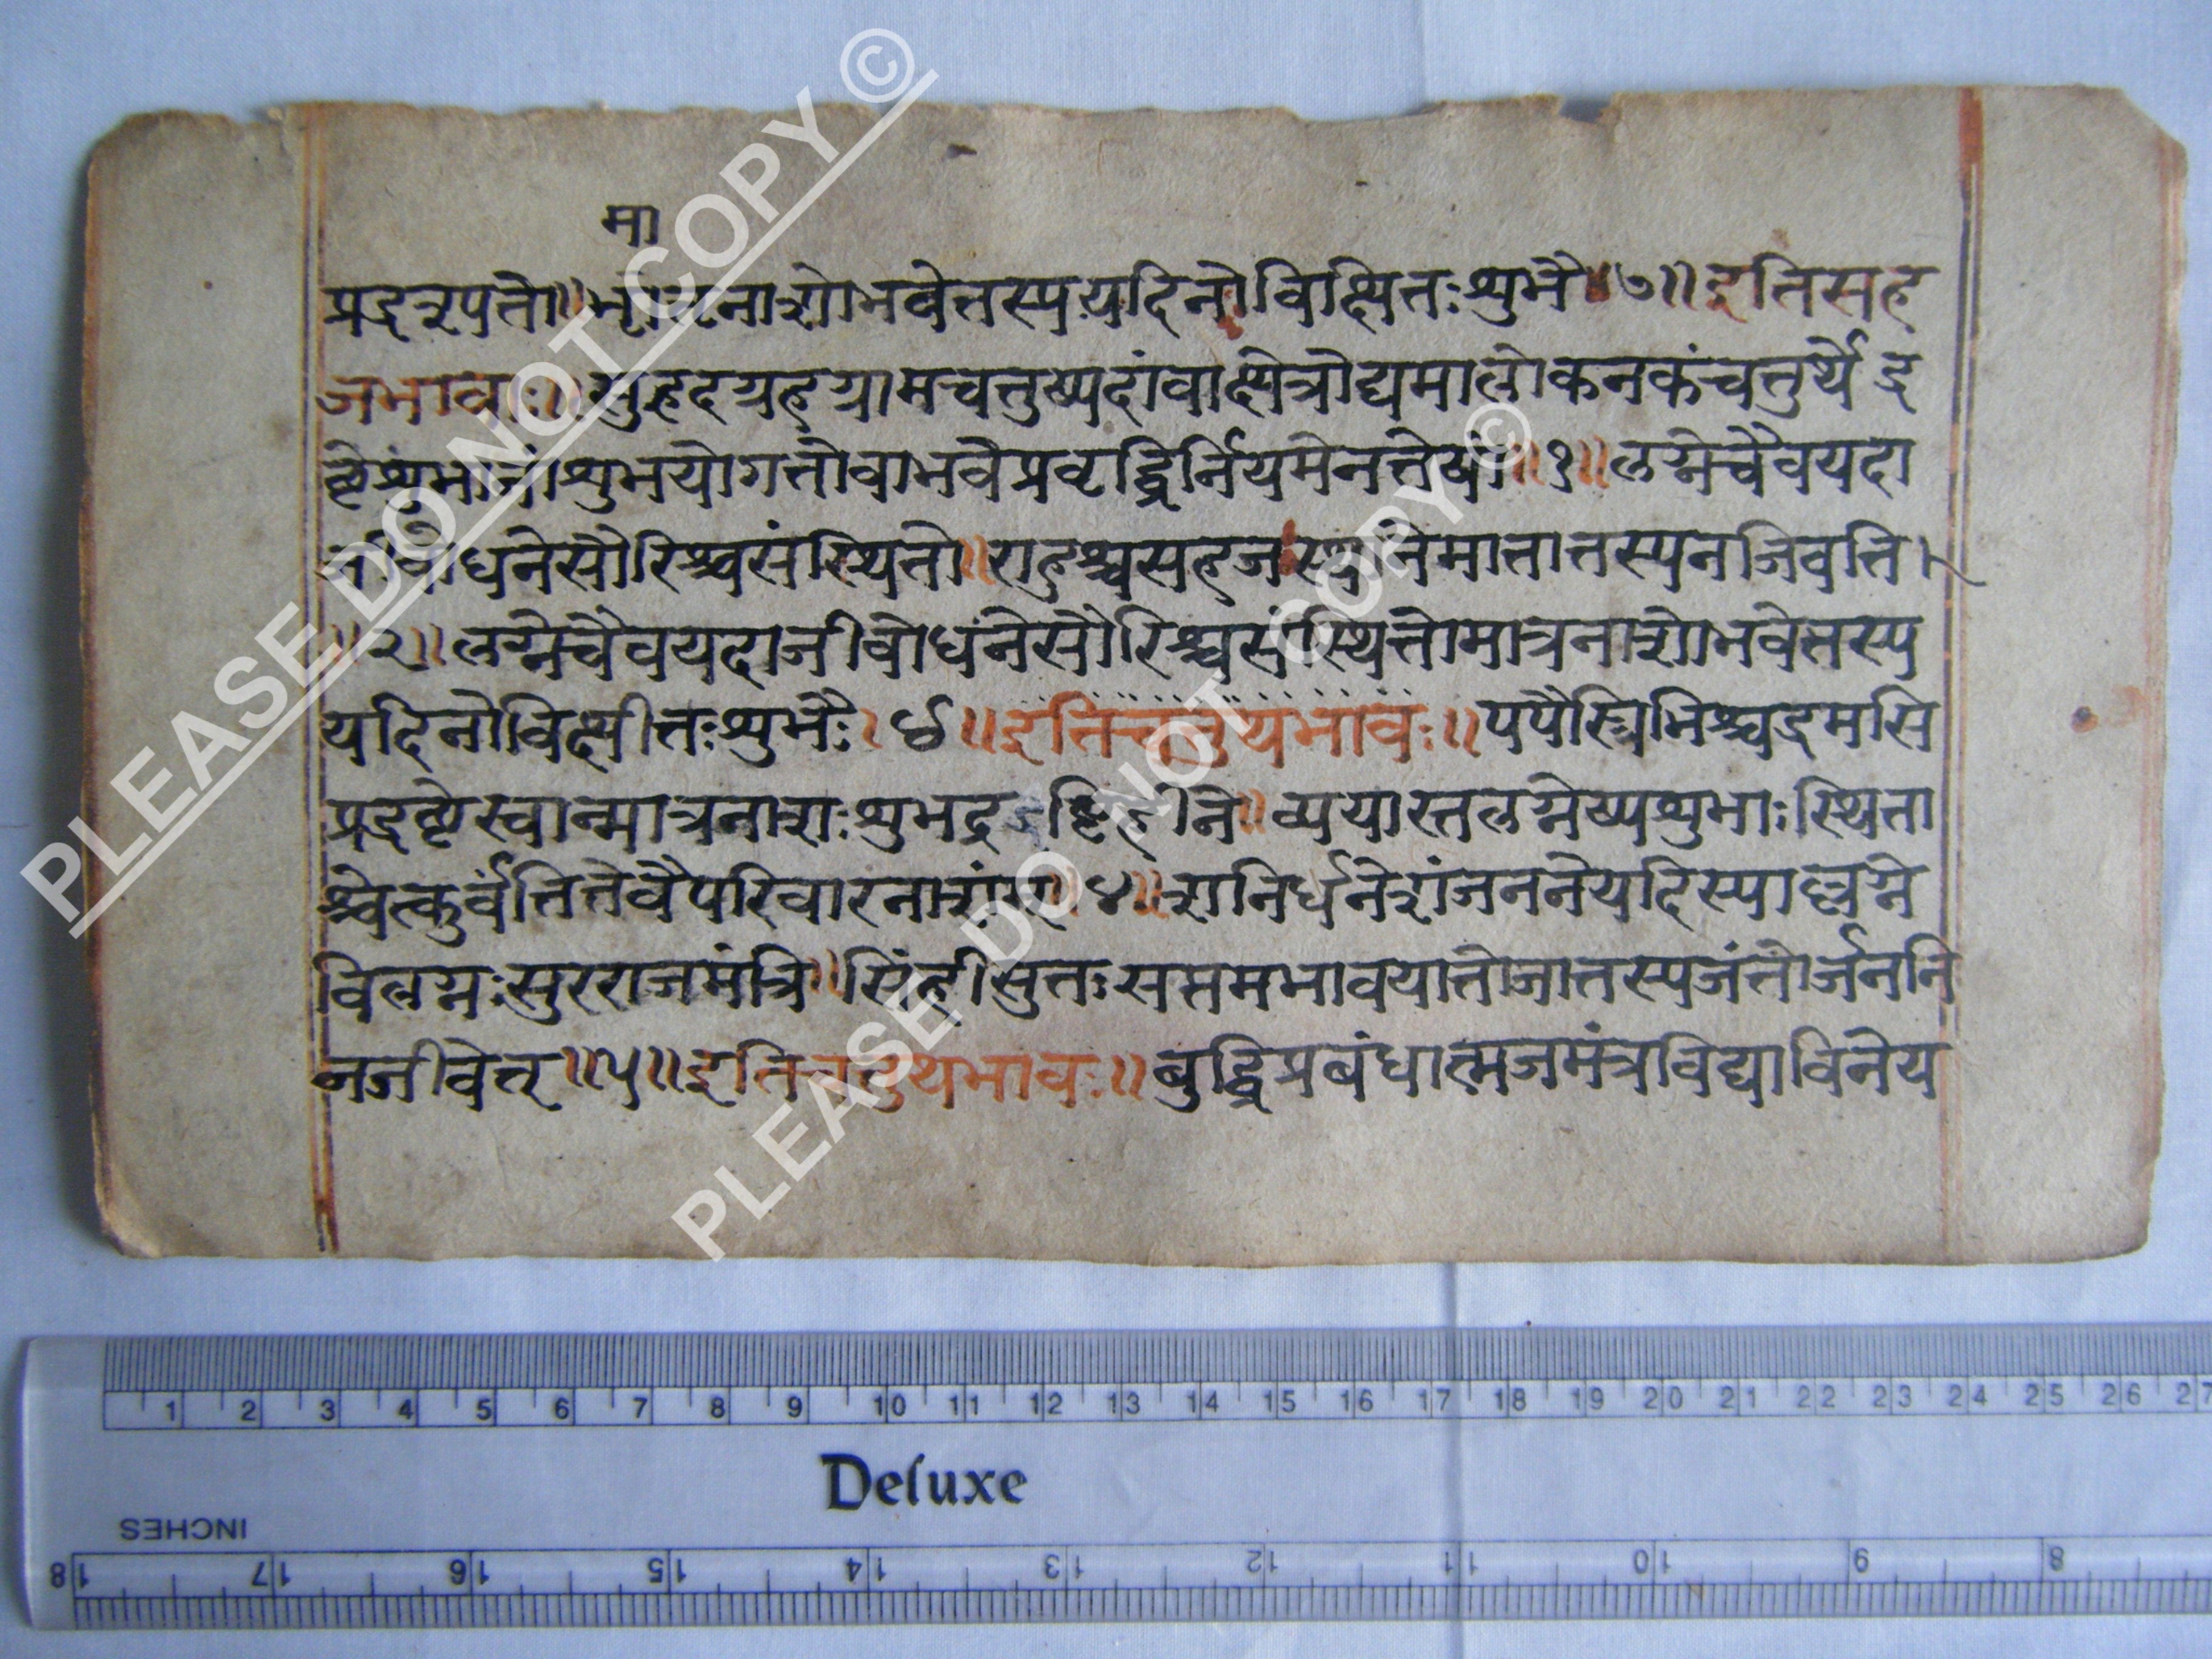 मा
प्रदृश्पतो॥भ्रातृनाशोभवेत्तस्ययदिनोविक्षितःशुभै॥७॥इतिसह
जभावः॥सुहृदयहग्रामचतुष्पदांवाक्षेत्रोद्यमालोकनकंचतुर्थेदृ
ष्टेशुभानांशुभयोगतोवाभवैप्रवृद्धिर्नियमेनतेषां॥१॥लग्नेचैवयदा
जीवोधनेसौरिश्चसंस्थितो॥राहुश्चसहजस्थानेमातातस्यनजिवति।
॥२॥लग्नेचैवयदाजीवोधनेसौरिश्चसंस्थितोमात्रनाशोभवेत्तस्य
यदिनोविक्षीतःशुभैः।३॥इतिचतुयभावः॥पपैस्त्रिभिश्चद्रमसि
प्रदृष्टेस्यान्मात्रनाशःशुभदृष्टिहीने॥व्ययास्तलग्नेष्पशुभाःस्थिता
श्चेत्कुर्वंतितेवैपरिवारनाशं॥४॥शनिर्धनेशंजननेयदिस्याल्लग्ने
विलग्नःसुरराजमंत्रि॥सिंहीसुतःसप्तमभावयातोजातस्यजंतोर्जननि
नजीवेत्॥५॥इतिचतुथभावः॥बुद्धिप्रबंधात्मजमंत्रविद्याविनेय
PLEASE DO NOT COPY ©
PLEASE DO NOT COPY ©
1 2 3 4 5 6 7 8 9 10 11 12 13 14 15 16 17 18 19 20 21 22 23 24 25 26 27
Deluxe
INCHES
18 17 16 15 14 13 12 11 10 9 8